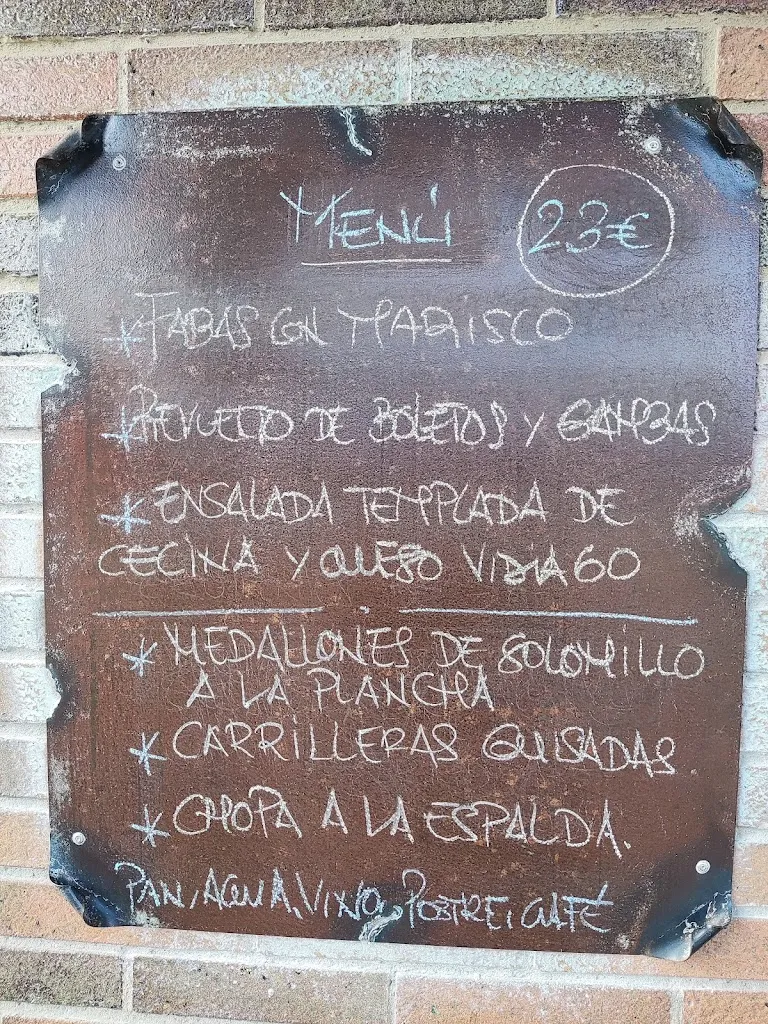 MENÚ 23€
* FABAS CON MARISCO
* REVUELTO DE BOLETOS Y GAMBAS
* ENSALADA TEMPLADA DE
CECINA Y QUESO VIDIAGO
* MEDALLONES DE SOLOMILLO
A LA PLANCHA
* CARRILLERAS GUISADAS
* CHOPA A LA ESPALDA.
PAN, AGUA, VINO, POSTRE, CAFÉ